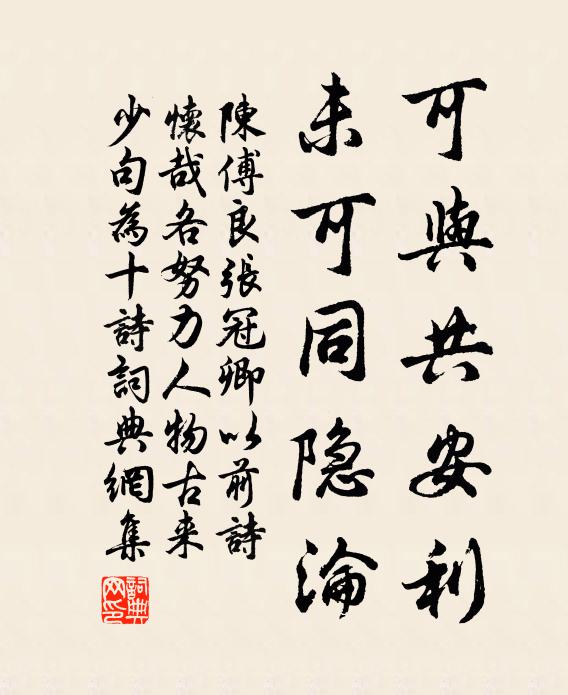 可與共安利
未可同隐淪
陳傅良張冠卿以前詩
懷哉各努力人物古来
少句為十詩詞典網集
詞典网印